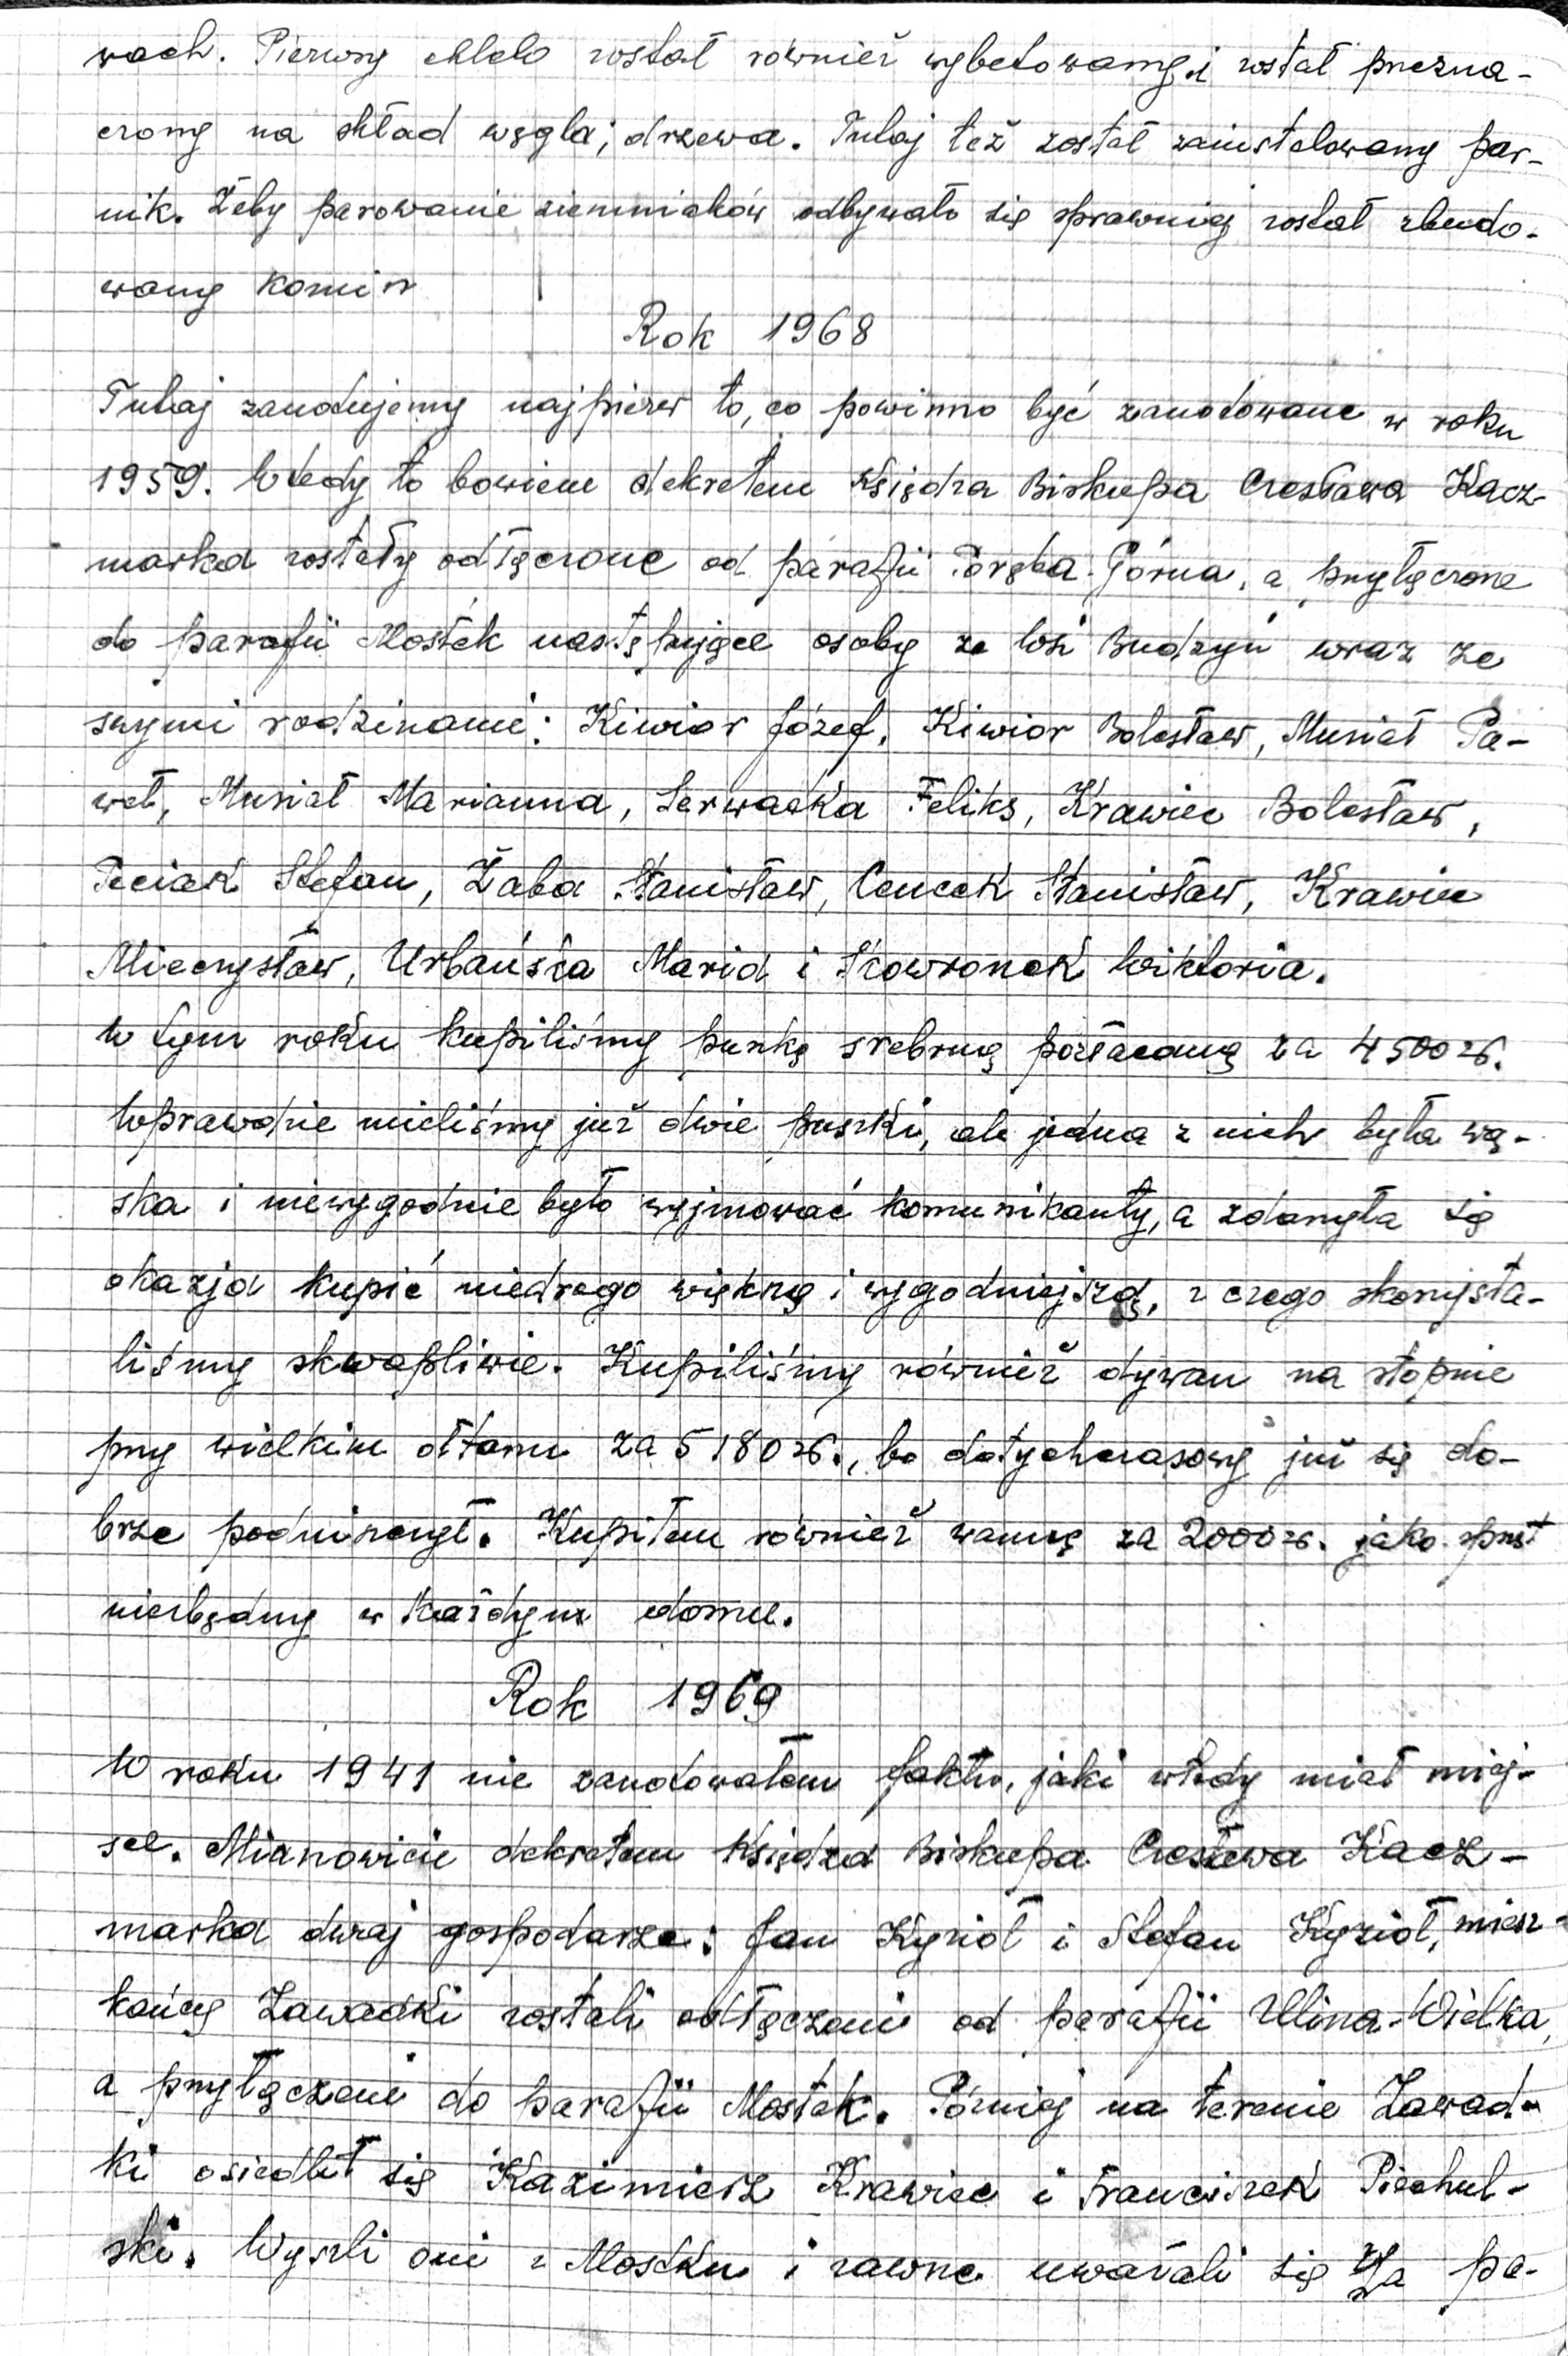 wach. Pierwszy chlew został również wybetonowany i został przezna-
czony na skład węgla i drzewa. Tutaj też został zainstalowany par-
nik. Żeby parowanie ziemniaków odbywało się sprawniej został zbudo-
wany komin
Rok 1968
Tutaj zanotujemy najpierw to, co powinno być zanotowane w roku
1959. Wtedy to bowiem dekretem Księdza Biskupa Czesława Kacz-
marka zostały odłączone od parafii Poręba Górna, a przyłączone
do parafii Mostek następujące osoby ze wsi Budzyń wraz ze
swymi rodzinami: Kiwior Józef, Kiwior Bolesław, Musiał Pa-
weł, Musiał Marianna, Serwatka Feliks, Krawiec Bolesław,
Peciak Stefan, Żaba Stanisław, Cencek Stanisław, Krawiec
Mieczysław, Urbańska Maria i Skowronek Wiktoria.
W tym roku kupiliśmy puszkę srebrną pozłacaną za 4500 zł.
Wprawdzie mieliśmy już dwie puszki, ale jedna z nich była wą-
ska i niewygodnie było wyjmować komunikanty, a zdarzyła się
okazja kupić niedrogo większą i wygodniejszą, z czego skorzysta-
liśmy skwapliwie. Kupiliśmy również dywan na stopnie
przy wielkim ołtarzu za 5180 zł., bo dotychczasowy już się do-
brze podniszczył. Kupiłem również wannę za 2000 zł. jako sprzęt
niezbędny w każdym domu.
Rok 1969
W roku 1941 nie zanotowałem faktu, jaki wtedy miał miej-
sce. Mianowicie dekretem Księdza Biskupa Czesława Kacz-
marka dwaj gospodarze: Jan Kyzioł i Stefan Kyzioł, miesz-
kańcy Zawadki zostali odłączeni od parafii Ulina-Wielka,
a przyłączeni do parafii Mostek. Później na terenie Zawad-
ki osiedlił się Kazimierz Krawiec i Franciszek Piechul-
ski. Wyszli oni z Mostku i zawsze uważali się za pa-